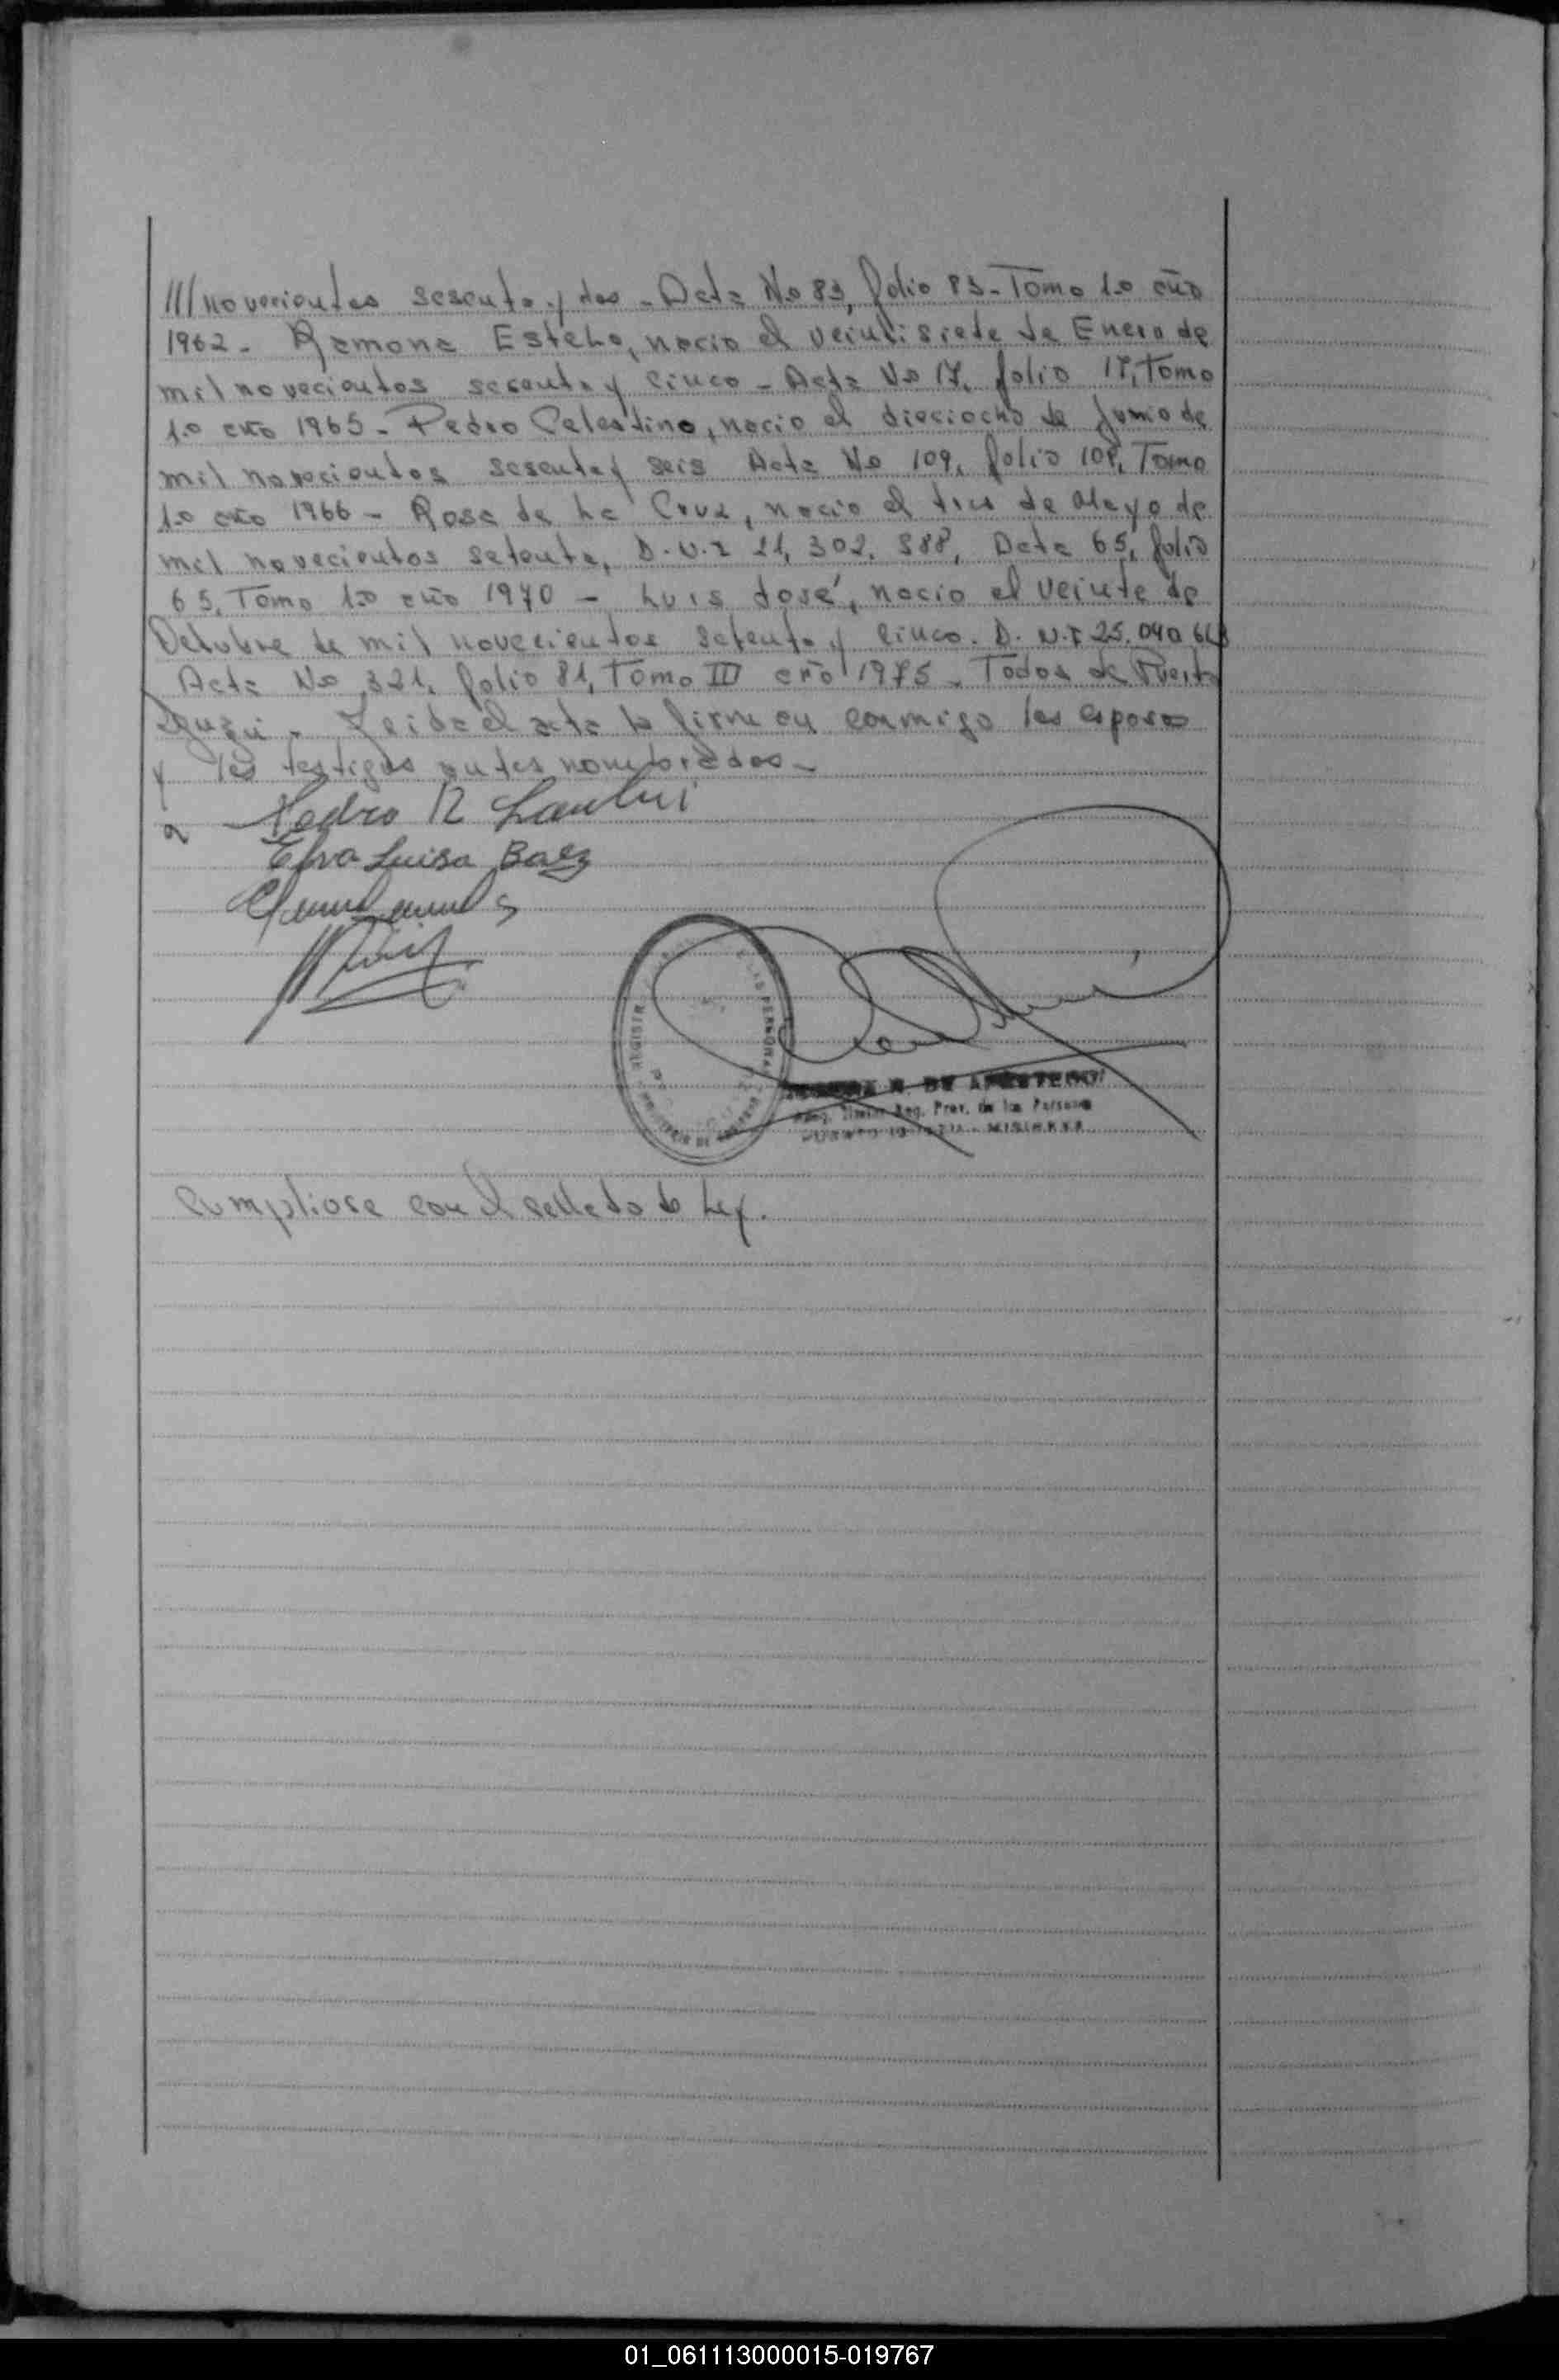 ///novecientos sesenta y dos - Acta No 83, folio 83 - Tomo 1.o año
1962 - Ramona Estela, nacio el veintisiete de Enero de
mil novecientos sesenta y cinco - Acta No 17, folio 17, Tomo
1.o año 1965 - Pedro Celestino, nacio el dieciocho de Junio de
mil novecientos sesenta y seis Acta No 109, folio 109, Tomo
1.o año 1966 - Rosa de la Cruz, nacio el tres de Mayo de
mil novecientos setenta, D.N.I 21.302.388, Acta 65, folio
65, Tomo 1.o año 1970 - Luis José, nacio el veinte de
Octubre de mil novecientos setenta y cinco. D.N.I 25.040.
Acta No 321, folio 81, Tomo III año 1975 - Todos de Puerto
Leida el acta la firman conmigo los esposos
y los testigos antes nombrados -
Pedro R
Elva Luisa Baez
REGISTR LAS PERSONA
Reg. Prov. de las Personas
MISIONES
Cumpliose con el sellado de Ley.
01_061113000015-019767